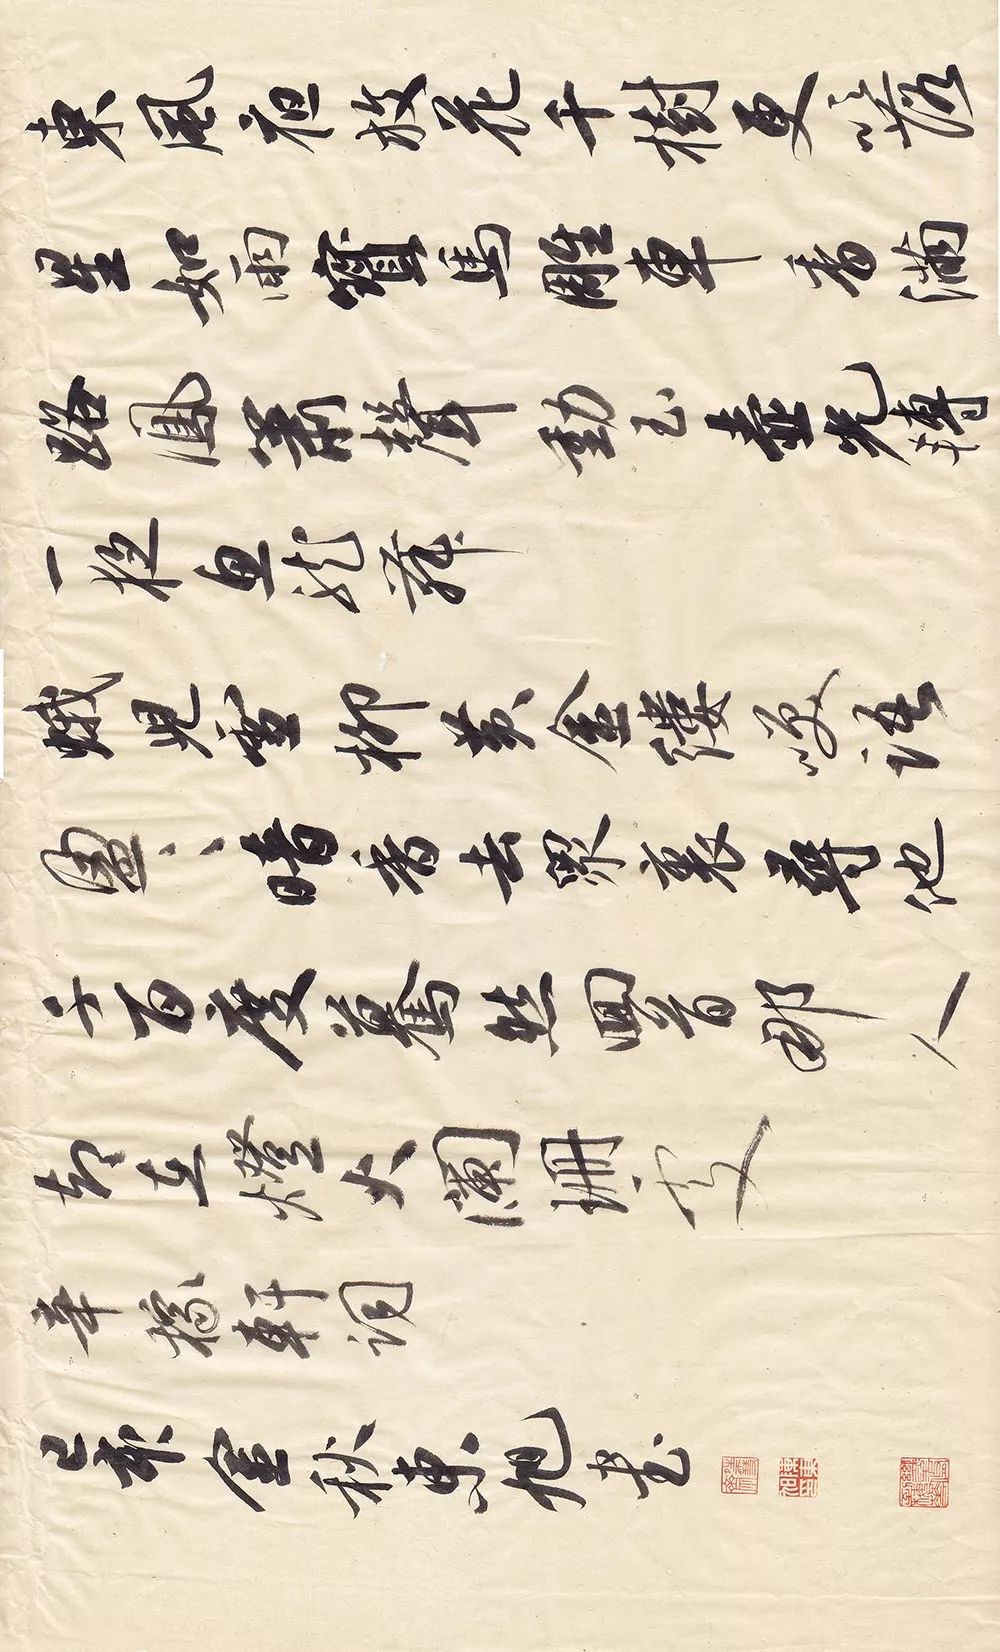 東風夜放花千樹更吹落
星如雨寶馬雕車香滿
路鳳簫聲動玉壺光轉
一夜魚龍舞
蛾兒雪柳黃金縷笑語
盈〻暗香去眾裏尋他
千百度驀然回首那人
却在燈火闌珊處
辛稼軒詞
己卯金秋書